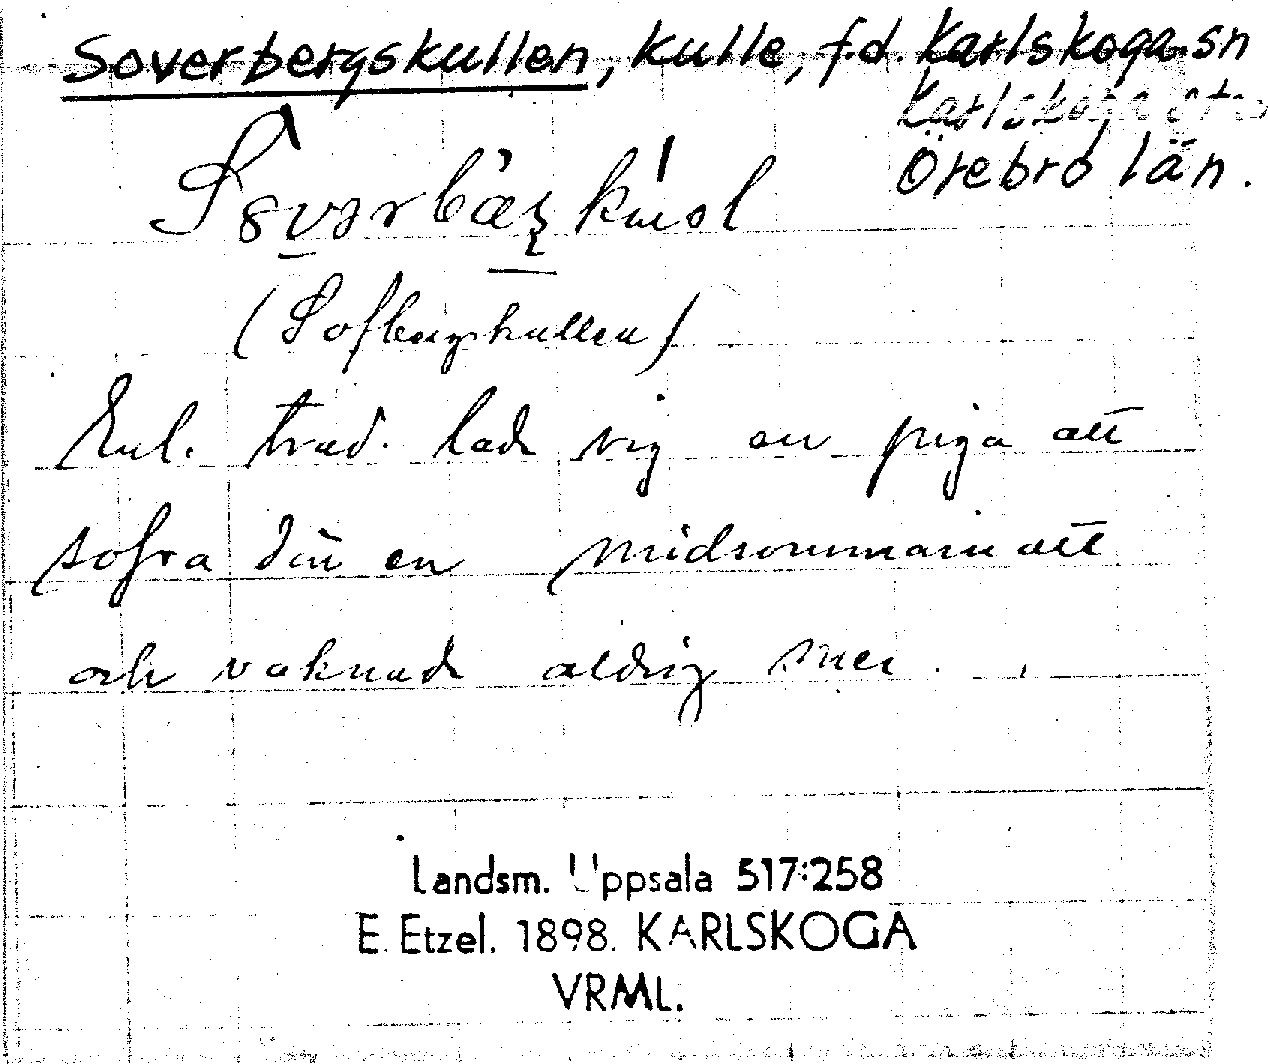 Soverbergskullen, kulle, f.d. Karlskoga sn
Karlskoga
Örebro län.
(Sofbergskullen)
Enl. trad. lade sig en piga att
sofva där en midsommarnatt
och vaknade aldrig mer.
Landsm. Uppsala 517:258
E. Etzel. 1898. KARLSKOGA
VRML.